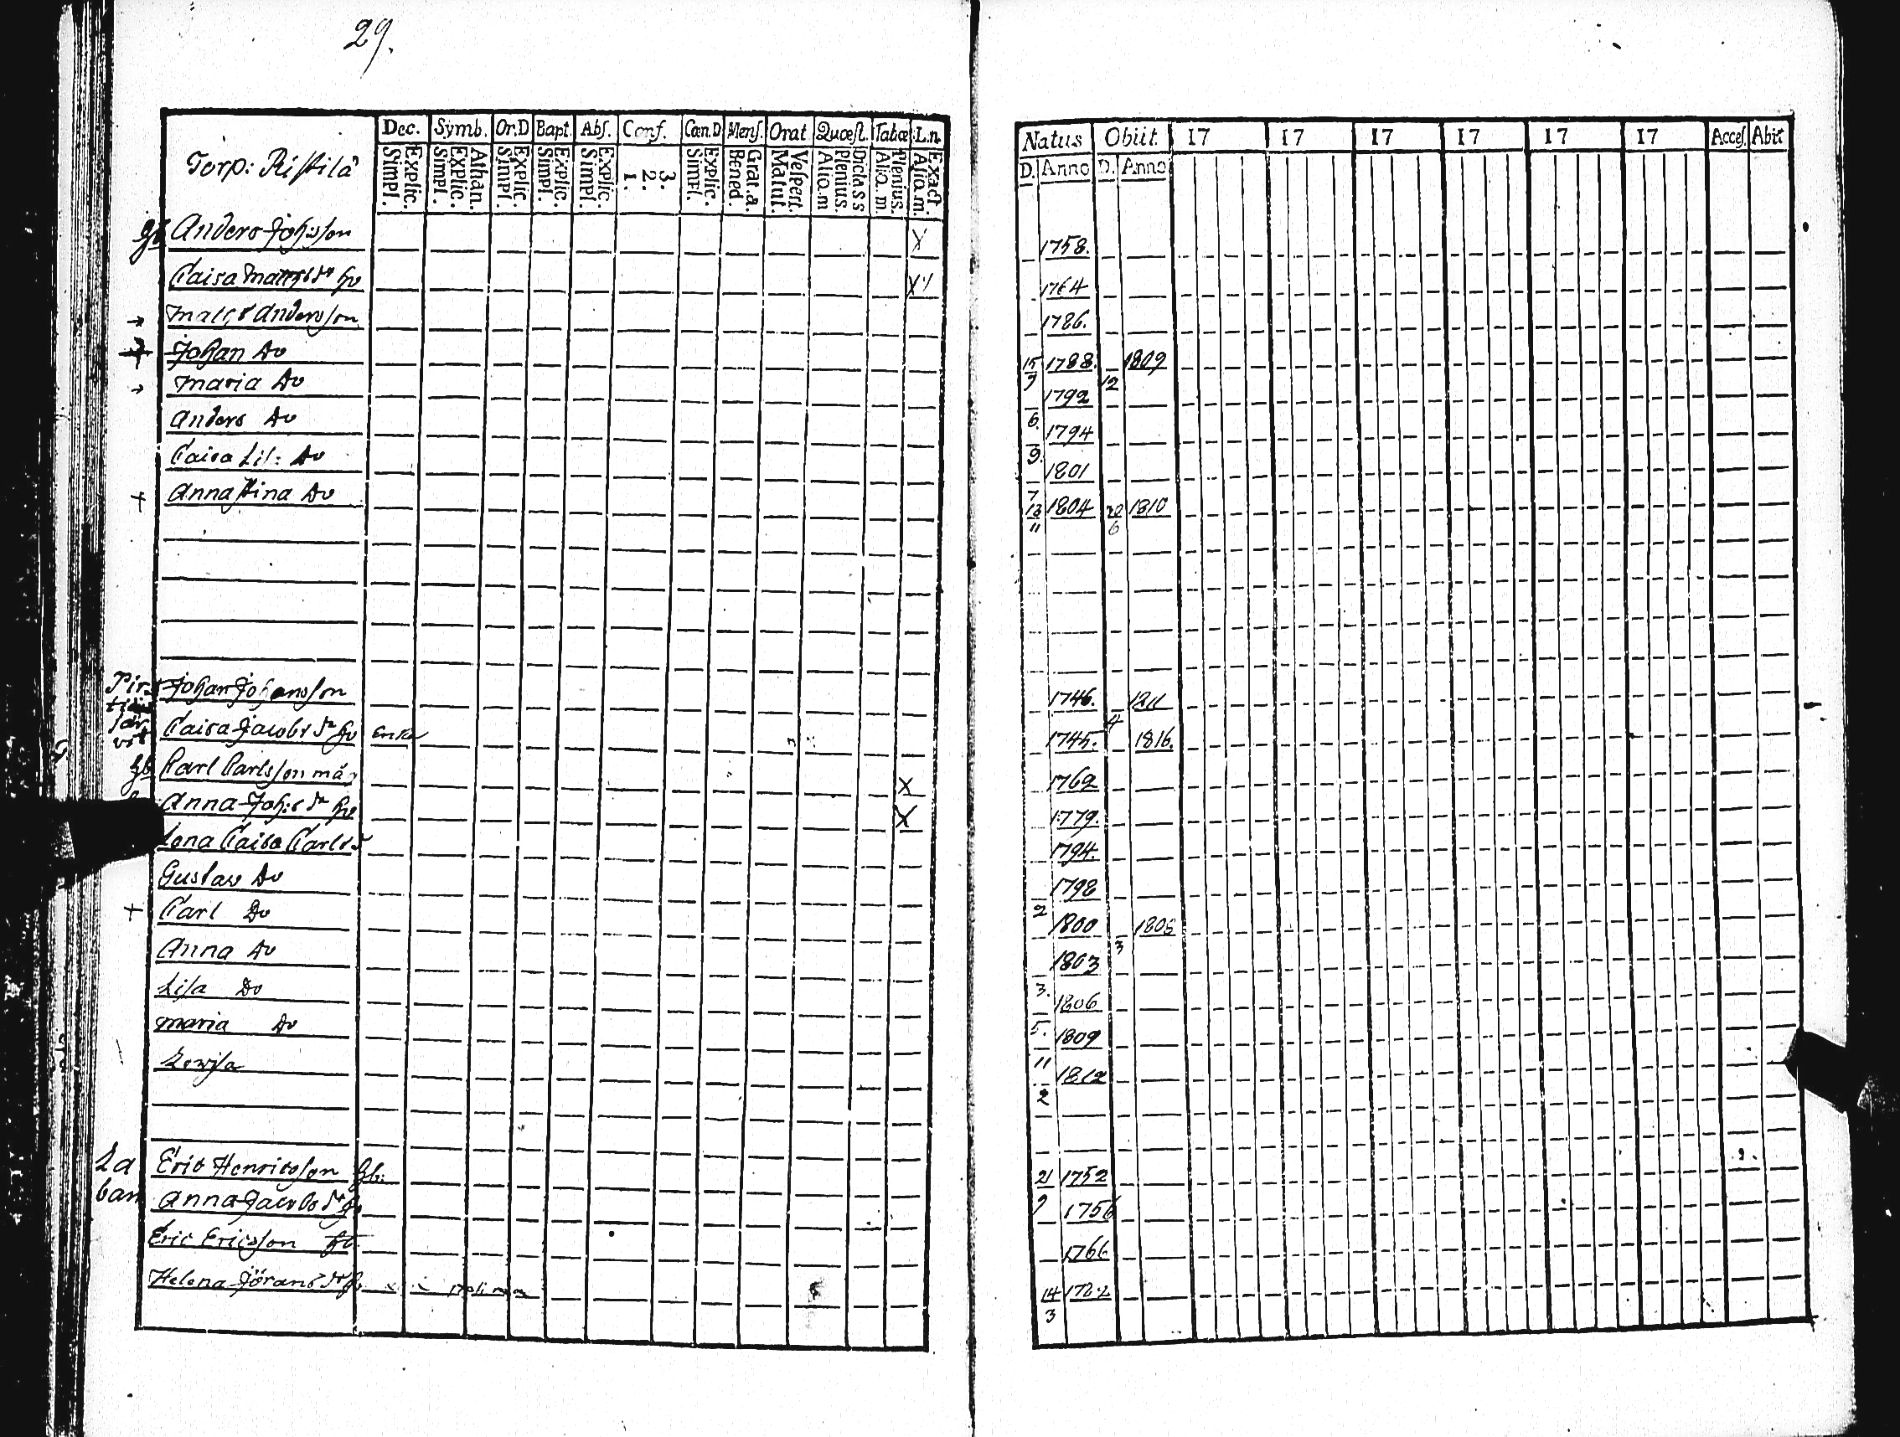 29.
Dec. Symb. Or.D Bapt. Abs. Conf. Cœn.D Mens. Orat Quæst. Tabæ L.n.
Natus Obiit. 17 17 17 17 17 17 Acces. Abit
Torp: Ristilä
Simpl. Explic. Simpl. Explic. Athan. Simpl. Explic. Simpl. Explic. Simpl. Explic. 1. 2. 3. Simpl. Explic. Bened. Grat.a. Matut. Vespert. Alio.m Plenius. Dicta SS Alio.m Plenius. Alio.m. Exact
D. Anno D. Anno
Gb Anders Johsson X 1758.
Caisa Mattsdr hu X 1764
Matts Andersson 1786.
+ Johan Do 15/9 1788. 12 1809
Maria Do 1792
Anders Do 6. 1794
Caisa Lis: Do 9. 1801
+ Anna Stina Do 7 13/11 1804 20/6 1810
Johan Johansson 1746. 1811
Caisa Jacobs dr hu Enka 4 1745. 1816.
Gb Carl Carlsson måg X 1762
Anna Johs dr hu X 1779.
Lena Caisa Carlsd 1794.
Gustav Do 1798
+ Carl Do 2 1800 1805
Anna Do 3 1803
Lisa Do 3. 1806
Maria Do 5. 1809
Lowisa 11 1812
2
La
ban
Eric Henricsson Gb: 21/9 1752
Anna Jacobs dr hu 1756
Eric Ericsson 1766
Helena Jörans dr hu 14/3